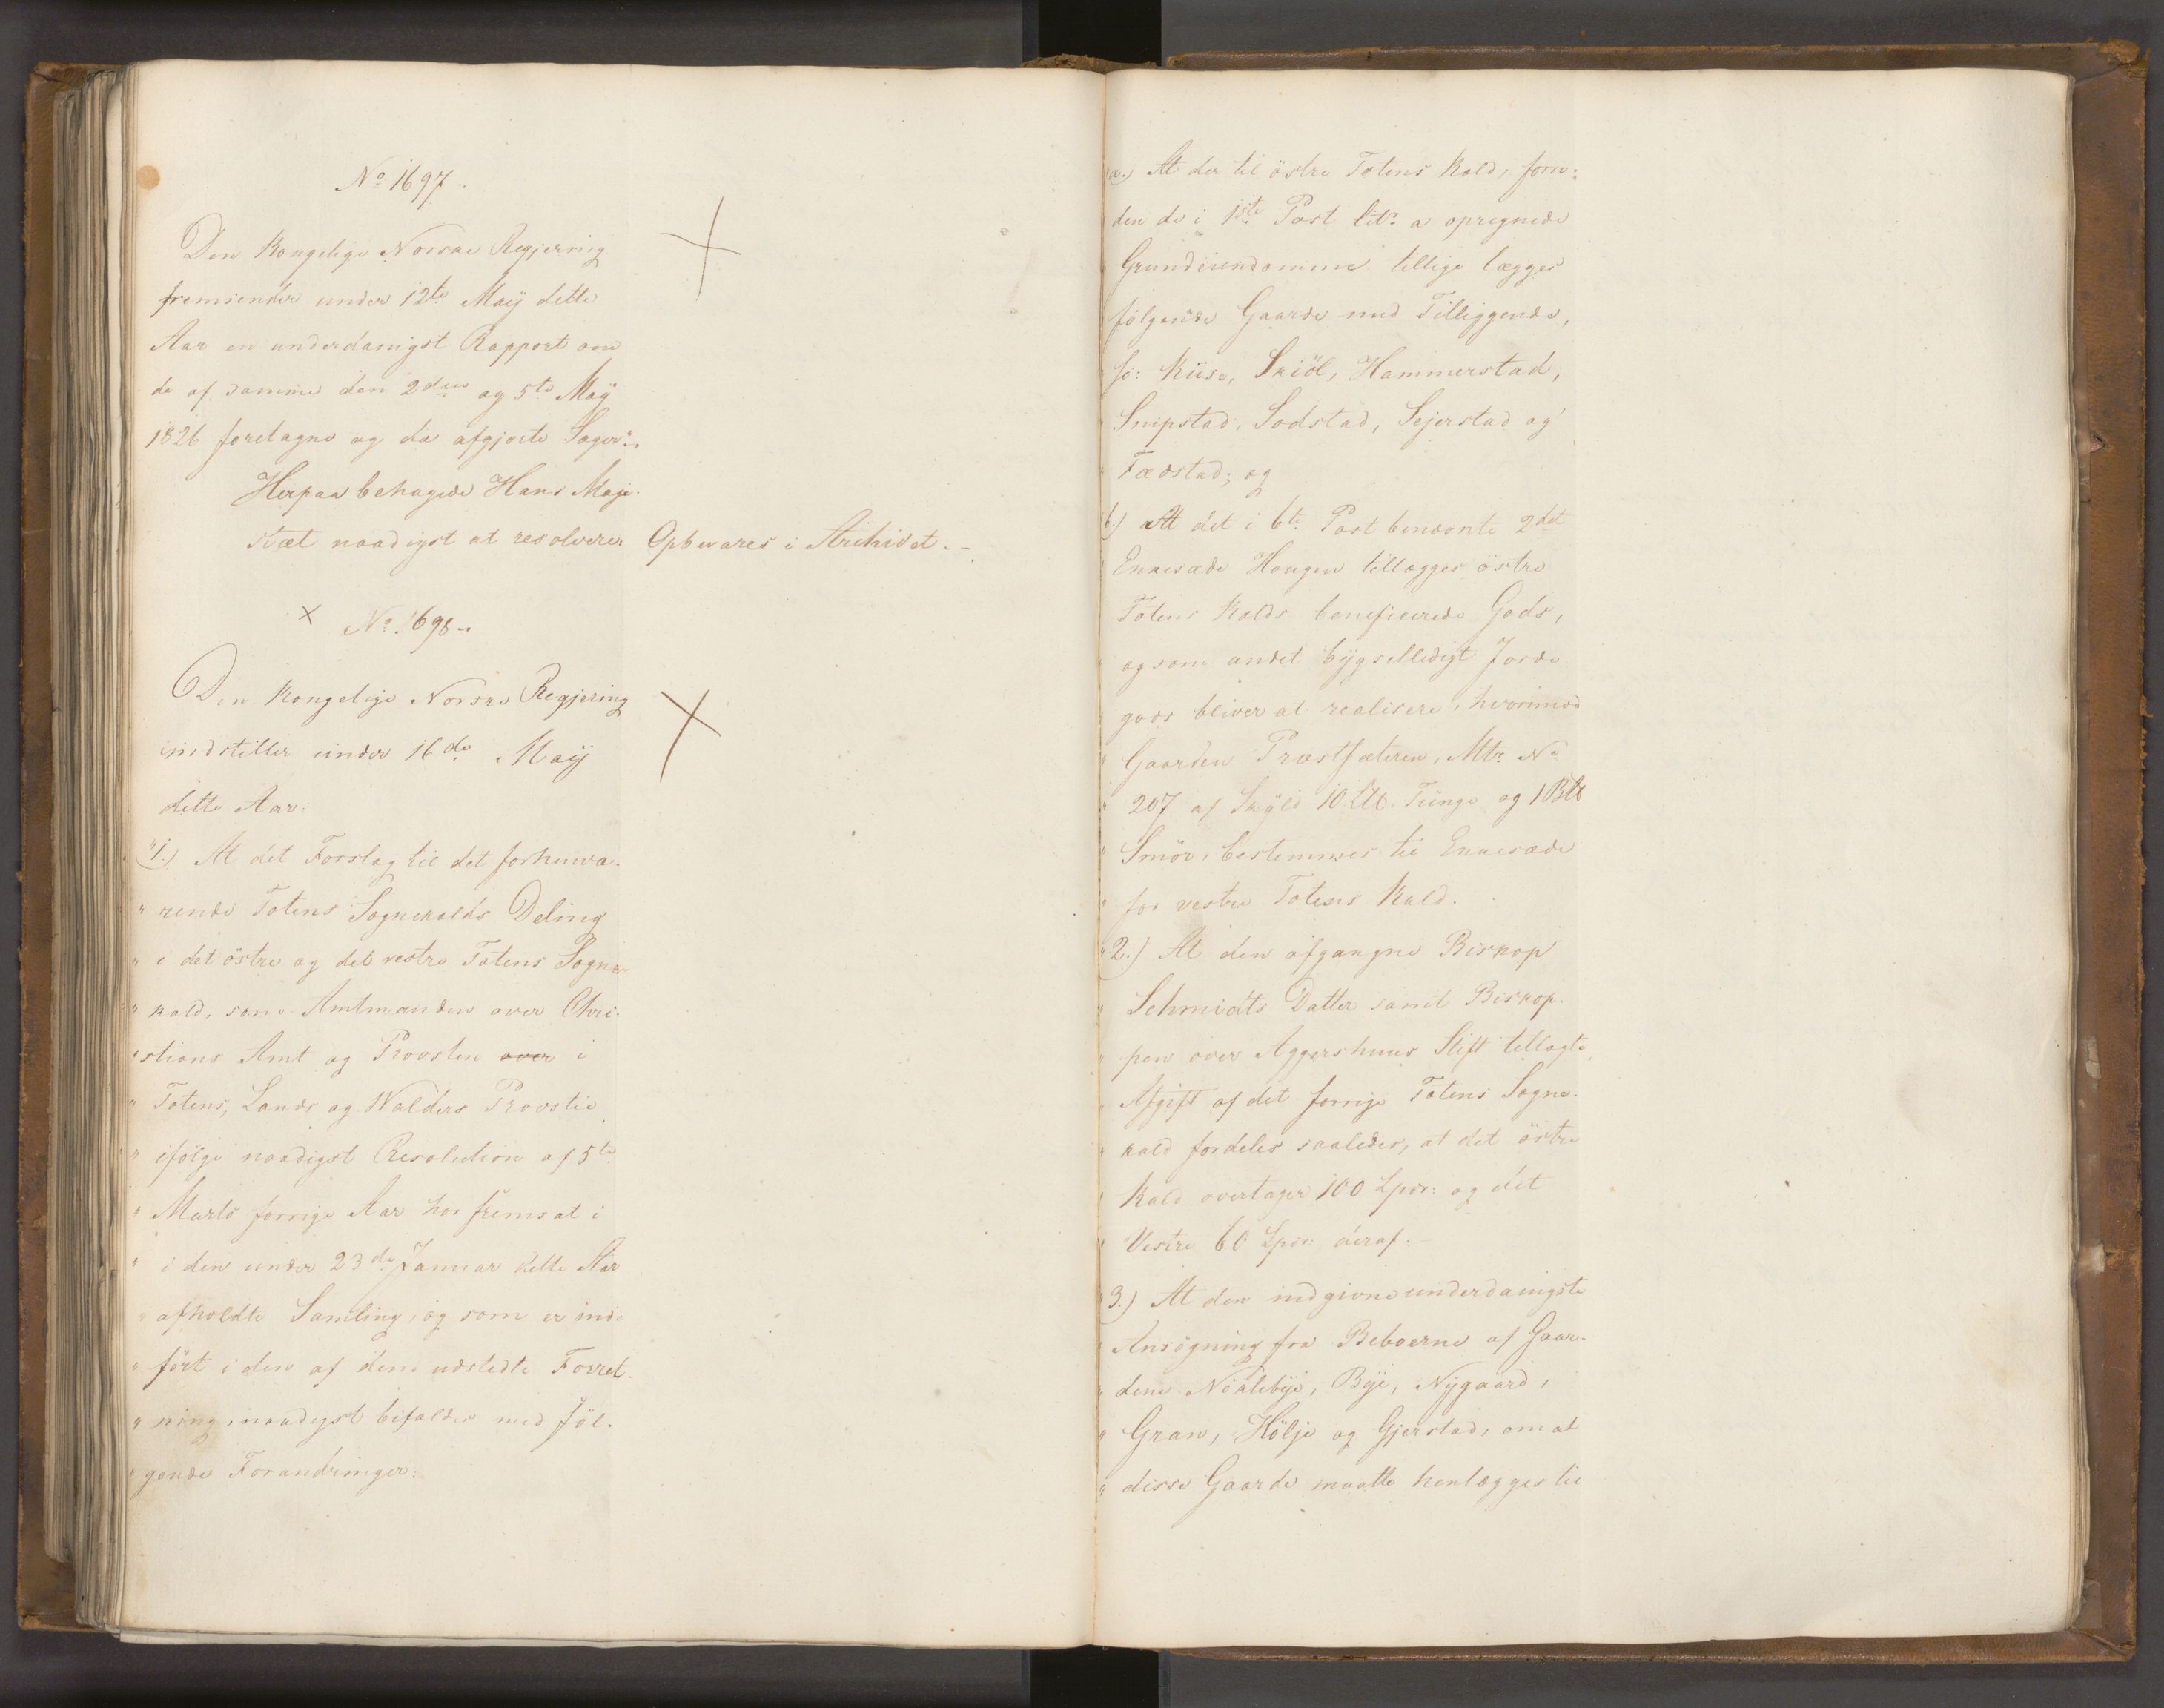 No 1697.
Den Kongelige Norske Regjering
fremsender under 12te Maÿ dette
Aar en underdanigst Rapport om
de af samme den 2den og 5te Maÿ
1826 foretagne og da afgjorte Sager.
Herpaa behagede Hans Maje-
stæt naadigst at resolvere: Opbevares i Archivet.-
No 1698.
Den Kongelige Norske Regjering
indstiller under 16de Maÿ
dette Aar:
"1.) At det Forslag til det forhenva-
" rende Totens Sognekalds Deling
" i det östre og det vestre Totens Sogne-
" kald, som Amtmanden over Chri-
" stians Amt og Provsten over i
" Totens, Lands og Walders Provstie
" ifölge naadigst Resolution af 5te
" Marts forrige Aar har fremsat i
" i den under 23de Januar dette Aar
" afholdte Samling, og som er ind-
" fört i den af dem udstedte Forret-
" ning, naadigst bifaldes med föl-
" gende Forandringer:
a.) At der til östre Totens Kald, foru-
den de i 1ste Post litr. a opregnede
Grundeiendomme tillige lægges
fölgende Gaarde med Tilliggende,
so: Kiise, Skiöl, Hammerstad,
Snipstad, Sodstad, Sejerstad og
Fædstad; og
b.) At det i 6te Post benævnte 2det
Enkesæde Hougen tillægges östre
Totens Kalds beneficerede Gods,
og som andet bÿgselledigt Jorde-
gods bliver at realisere, hvorimod
Gaarden Præstsæteren, Mtr. No
" 207 af Skÿld 10 L℔. Tunge og 1 B℔
" Smör, bestemmes til Enkesæde
" for vestre Totens Kald.
"2.) At den afgangne Biskop
" Schmidts Datter samt Biskop-
" pen over Aggershuus Stift tillagte
" Afgift af det forrige Totens Sogne-
" kald fordeles saaledes, at det östre
" Kald overtager 100 Spdr: og det
" Vestre 60 Spdr: deraf.-
3.) At den indgivne underdanigste
Ansögning fra Beboerne af Gaar-
" dene Nöklebÿe, Bÿe, Nÿgaard,
" Gran, Hölje og Gjerstad, om at
" disse Gaarde maatte henlægges til